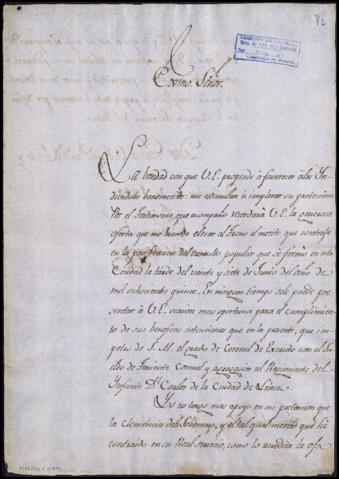 82
Exmo. Señor.
La bondad con que V.E. propende á favorecer á los In-
dividuos benemeritos me estimulan á implorar su proteccion
Por el Testimonio que acompaño recordará V.E. la generosa
oferta que me hizo de elevar al Trono el merito que contraje
en la pacificacion del tumulto popular que se formó en esta
Ciudad la tarde del veinte y siete de Junio del año de
mil ochocientos quince. En ningun tiempo se le puede pre-
sentar á V.E. ocasion mas oportuna para el cumplimien-
to de sus beneficas intenciones que en la presente, que im-
petro de S.M. el grado de Coronel de Exercito con el Suel-
do de Teniente Coronel y agregacion al Regimiento del
Infante Dn. Carlos de la Ciudad de Lima.
Yo no tengo mas apoyo en mi pretencion que
la Clemencia del Soberano, y el tal qual merito que he
contraido en su Real servicio, como lo acredita la oja